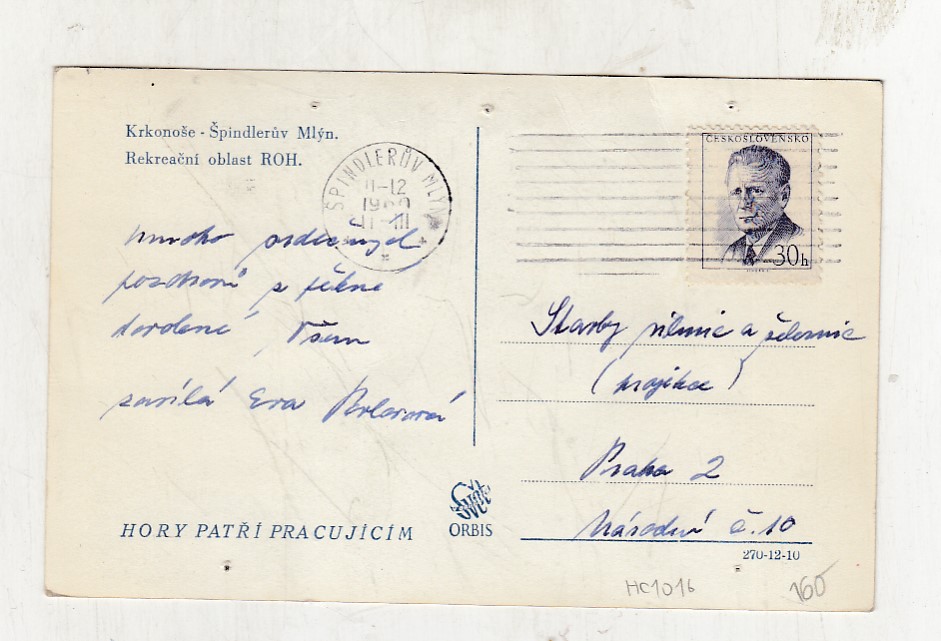 Krkonoše - Špindlerův Mlýn.
Rekreační oblast ROH.
ŠPINDLERŮV MLÝN
11-12
ČESKOSLOVENSKO
30h
mnoho srdečných
pozdravů z pěkné
Všem
zasílá Eva
Stavby silnic a železnic
(projekce)
Praha 2
Národní č. 10
Svět
ORBIS
HORY PATŘÍ PRACUJÍCÍM
270-12-10
HC1016
160